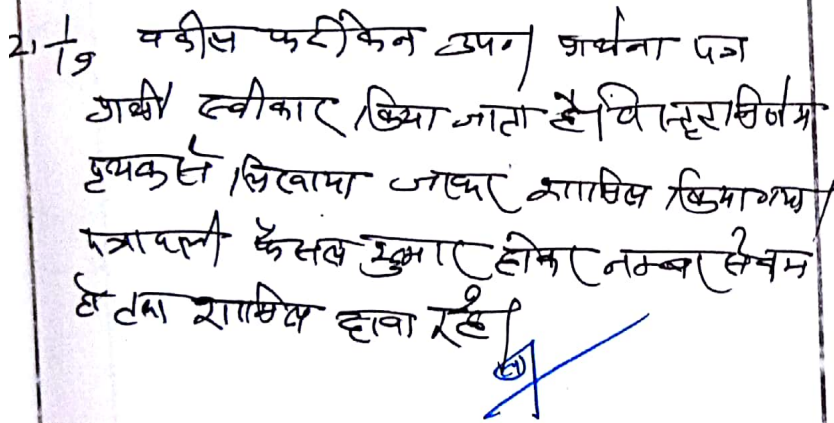 21/1/19 वकील फरीकेन उप0। प्रार्थना पत्र
प्रार्थी स्वीकार किया जाता है। विस्तृत निर्णय
पृथक से लिखाया जाकर शामिल किया गया।
पत्रावली फैसल शुमार होकर नम्बर से कम
हो तथा शामिल दावा रहे।